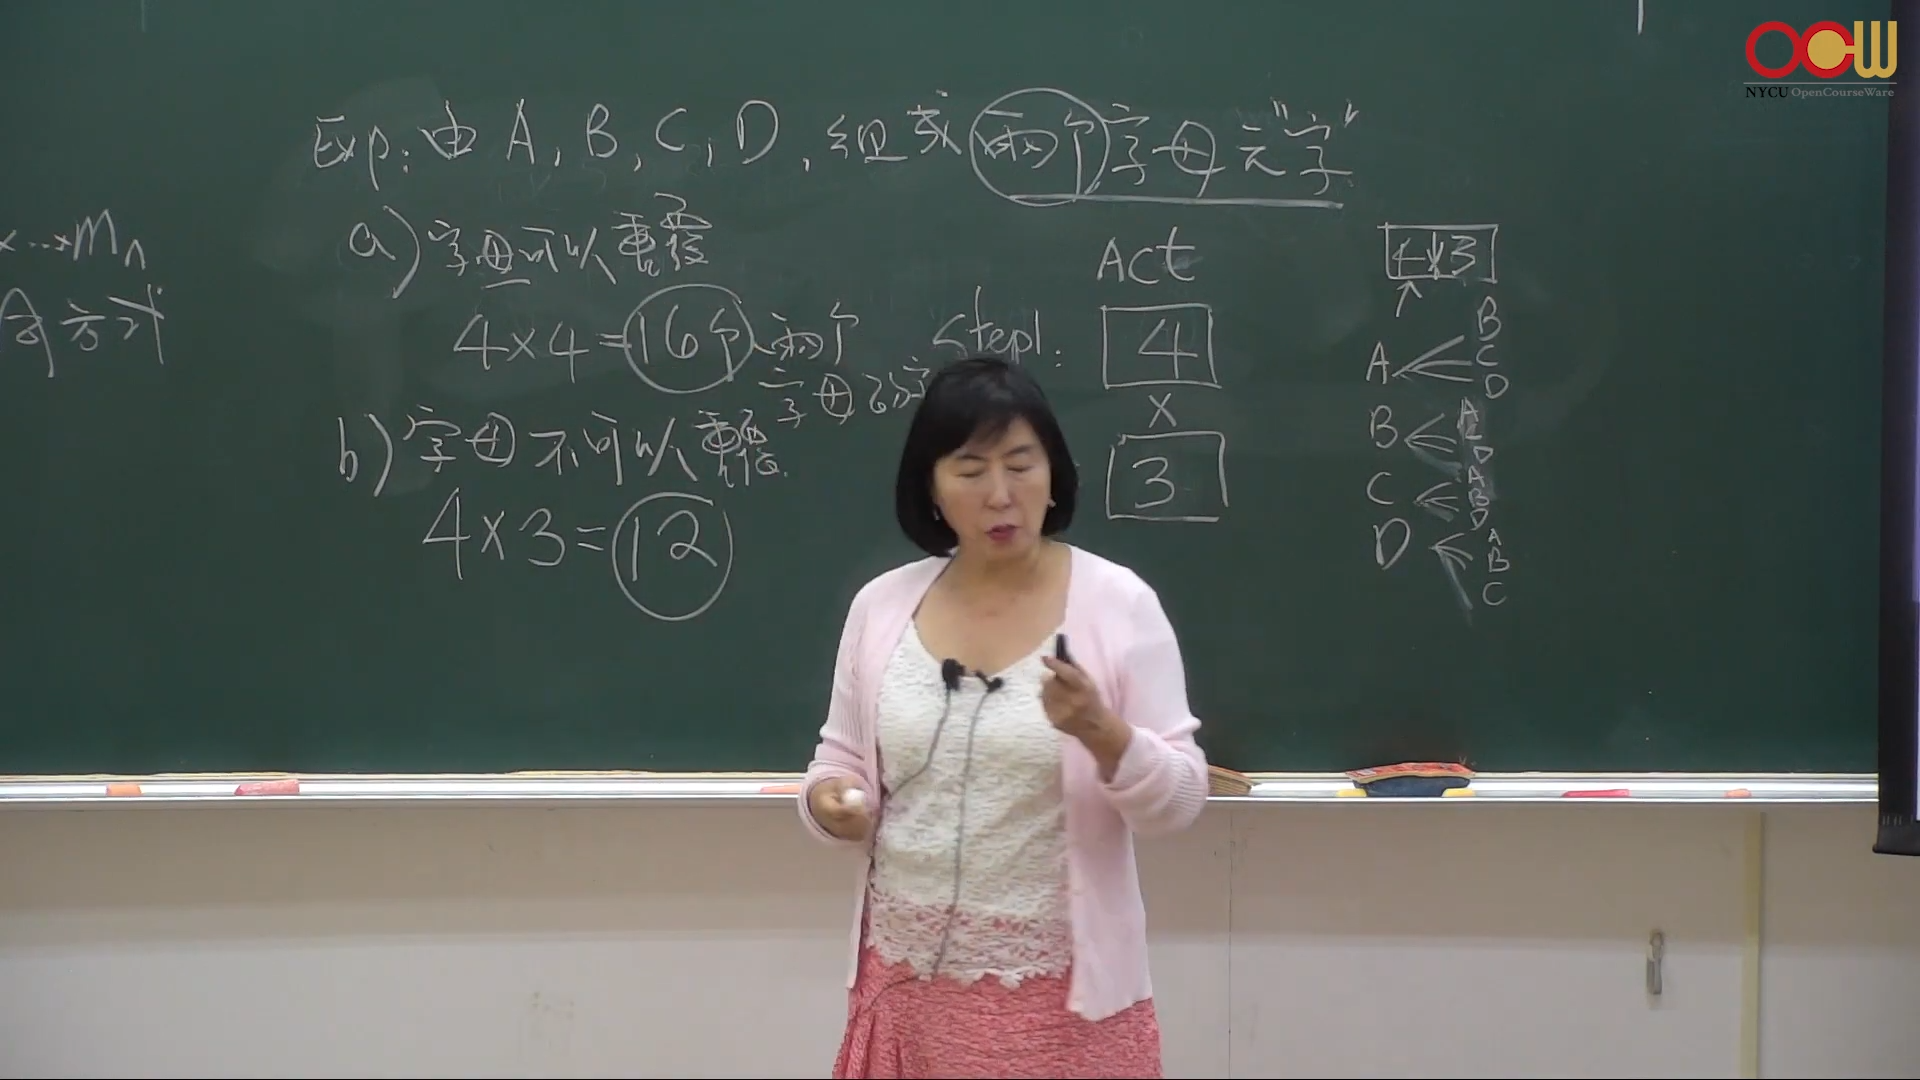 OCW
NYCU OpenCourseWare
Exp: 由 A, B, C, D, 組成兩个字母元"字"
x...x Mn
方式
a) 字母可以重複
4x4=16个兩个
字母的字
b) 字母不可以重複.
4x3=12
Act
Step1:
4
x
3
4x3
A B C D
B A C D
C A B D
D A B C